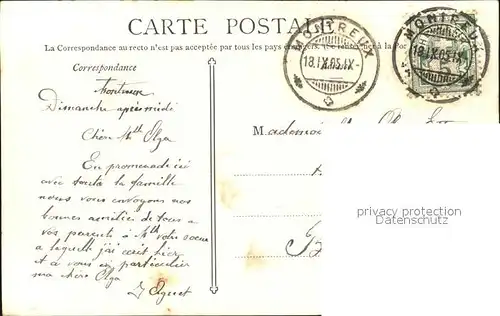 CARTE POSTAL
La Correspondance au recto n'est pas acceptée par tous les pays
Correspondance
MONTREUX
18.IX.05.IX-
MONTREUX
18.IX.05.IX
5
Montreux
Dimanche après midi
Chère Mlle Olga
En promenade ici
avec toute la famille
nous vous envoyons nos
bonnes amitiés de tous a
vos parents à Mlle votre soeur
a laquelle j'ai écrit hier
et a vous en particulier
ma chère Olga
Mademoi
privacy protection
Datenschutz